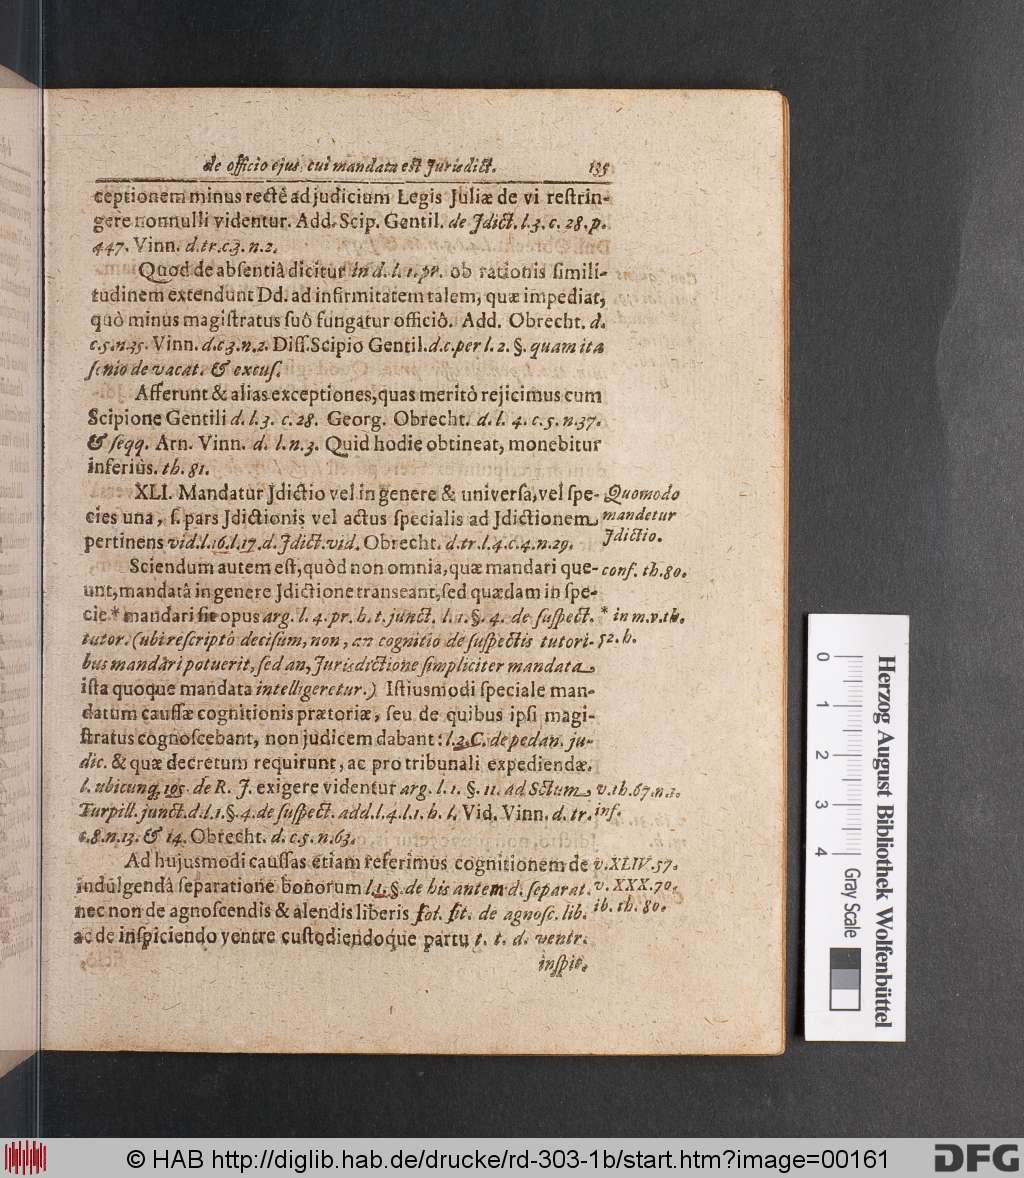 de officio ejus, cui mandata est Jurisdict. 135
ceptionem minus rectè ad judicium Legis Juliæ de vi restrin-
gere nonnulli videntur. Add. Scip. Gentil. de Jdict. l. 3. c. 28. p.
447. Vinn. d. tr. c3. n. 2.
Quod de absentiâ dicitur in d. l. 1. pr. ob rationis simili-
tudinem extendunt Dd. ad infirmitatem talem, quæ impediat,
quò minus magistratus suô fungatur officiô. Add. Obrecht. d.
c. 5. n. 35. Vinn. d. c 3. n. 2. Diss. Scipio Gentil. d. c. per l. 2. §. quam ita
senio de vacat. & excus.
Afferunt & alias exceptiones, quas meritò rejicimus cum
Scipione Gentili d. l. 3. c. 28. Georg. Obrecht. d. l. 4. c. 5. n. 37.
& seqq. Arn. Vinn. d. l. n. 3. Quid hodie obtineat, monebitur
inferiùs. th. 81.
XLI. Mandatur Jdictio vel in genere & universa, vel spe-
cies una, s. pars Jdictionis vel actus specialis ad Jdictionem
pertinens vid. l. 16. l. 17. d. Jdict. vid. Obrecht. d. tr. l. 4. c. 4. n. 29.
Quomodo
mandetur
Jdictio.
Sciendum autem est, quòd non omnia, quæ mandari que-
unt, mandatâ in genere Jdictione transeant, sed quædam in spe-
cie * mandari sit opus arg. l. 4. pr. h. t. junct. l. 1. §. 4. de suspect.
tutor. (ubi rescriptò decisum, non, an cognitio de suspectis tutori-
bus mandari potuerit, sed an, Jurisdictione simpliciter mandata
ista quoque mandata intelligeretur.) Istiusmodi speciale man-
datum caussæ cognitionis prætoriæ, seu de quibus ipsi magi-
stratus cognoscebant, non judicem dabant: l. 2. C. de pedan. ju-
dic. & quæ decretum requirunt, ac pro tribunali expediendæ.
l. ubicunq; 105. de R. J. exigere videntur arg. l. 1. §. 11. ad Sctum
Turpill. junct. d. l. 1. §. 4. de suspect. add. l. 4. l. 1. h. l. Vid. Vinn. d. tr.
c. 8. n. 13. & 14. Obrecht. d. c. 5. n. 63.
conf. th. 80.
* in m. v. th.
52. h.
v. th. 67. n. 1.
inf.
Ad hujusmodi caussas etiam referimus cognitionem de
indulgendâ separatione bonorum l. 1. §. de his autem d. separat.
nec non de agnoscendis & alendis liberis tot. tit. de agnosc. lib.
ac de inspiciendo ventre custodiendoque partu t. t. d. ventr.
v. XLIV. 57.
v. XXX. 70.
ib. th. 80.
inspic.
0 1 2 3 4
Gray Scale
Herzog August Bibliothek Wolfenbüttel
© HAB http://diglib.hab.de/drucke/rd-303-1b/start.htm?image=00161
DFG